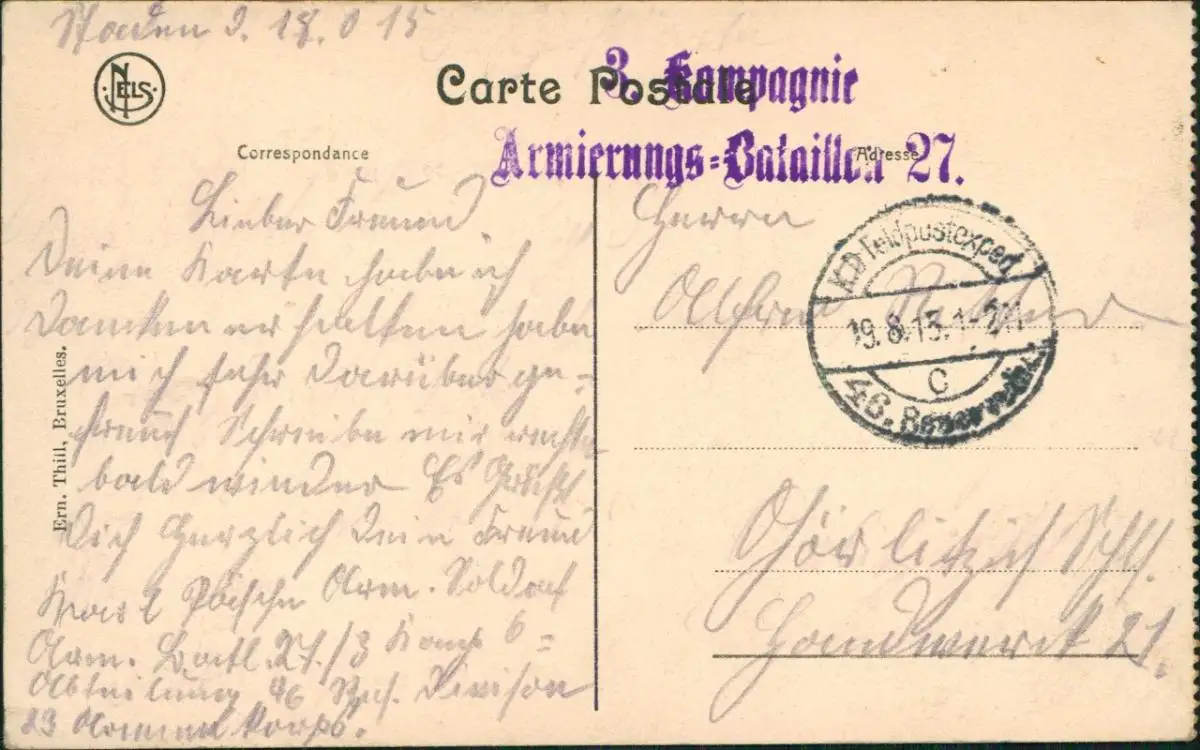 Staden d. 18. 8 15
NELS
Carte Postale
3. Kompagnie
Armierungs=Bataillon 27.
Correspondance
Adresse
Lieber Freund
Deine Karte habe ich
Dankent erhalten habe
mich sehr darüber ge=
freut Schreibe mir
bald wieder Es Grüßt
Dich Herzlich Dein Freund
Karl Arm. Soldat
Arm. Batl 27./3 Komp 6=
Abteilung 46 Res. Division
23 Armee Korps.
Ern. Thill, Bruxelles.
Herrn
Alfred
K.D. Feldpostexped.
19.8.15. 1-2N
C
46. Reserve
Görlitz i/ Schl.
Handwerk 21.